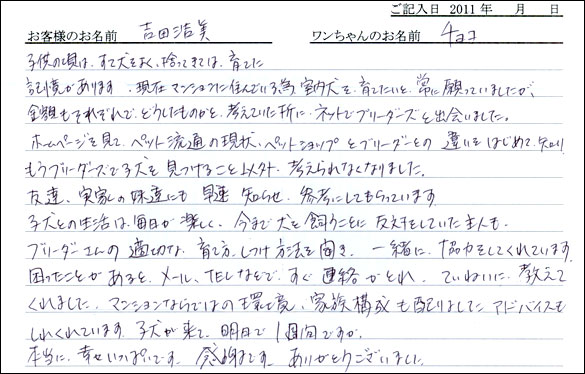 ご記入日 2011 年 月 日
お客様のお名前 吉田浩美 ワンちゃんのお名前 チョコ
子供の頃は、すて犬をよく、拾ってきては、育てた
記憶があります。現在マンションに住んでいる為 室内犬を、育てたいと、常に願っていましたが、
金額もそれぞれで、どうしたものかと、考えていた所に、ネットでブリーダーズと出会いました。
ホームページを見て、ペット流通の現状、ペットショップとブリーダーとの 違いをはじめて、知り、
もうブリーダーズで子犬を見つけること以外、考えられなくなりました。
友達、実家の妹達にも 早速 知らせ、参考にしてもらっています。
子犬との生活は、毎日が楽しく、今まで犬を飼うことに 反対をしていた主人も、
ブリーダーさんの 適切な、育て方、しつけ方法を聞き、一緒に、協力をしてくれています。
困ったことがあると、メール、TELなどで、すぐ連絡がとれ、ていねいに、教えて
くれました。マンションならではの環境、家族構成も配りょした アドバイスも
してくれています。子犬が来て、明日で1週間ですが、
本当に、幸せいっぱいです。感謝です。ありがとうございました。